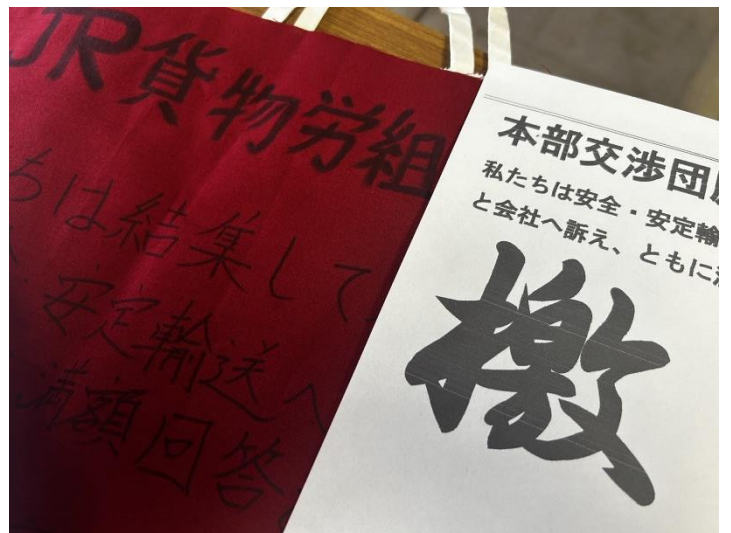 JR貨物労組
ちは結集して
安定輸送へ
満額回答
本部交渉団
私たちは安全・安定輸
と会社へ訴え、ともに
檄